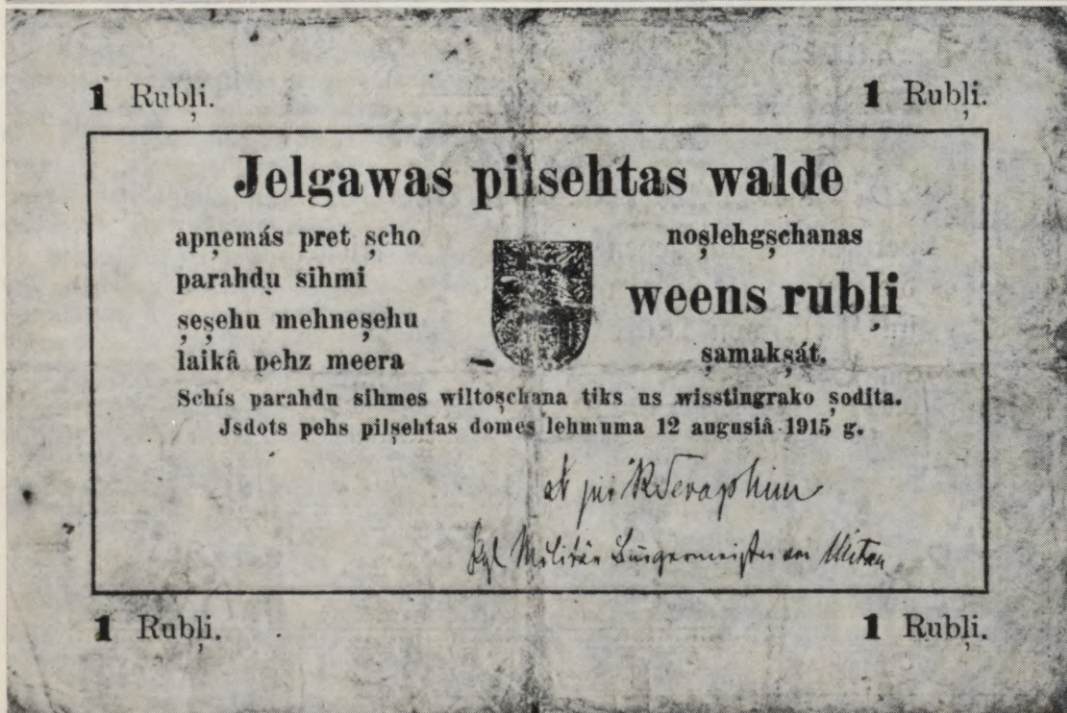 1 Rubļi. 1 Rubļi.
Jelgawas pilsehtas walde
apņemás pret şcho
parahdu sihmi
şeşehu mehneşehu
laikâ pehz meera
noşlehgşchanas
weens rubļi
şamakşát.
Schís parahdu sihmes wiltoşchana tiks us wisstingrako şodita.
Jsdots pehs pilşehtas domes lehmuma 12 augusiâ 1915 g.
Seraphim
Kgl Militär Bürgermeister von Mitau
1 Rubļi. 1 Rubļi.